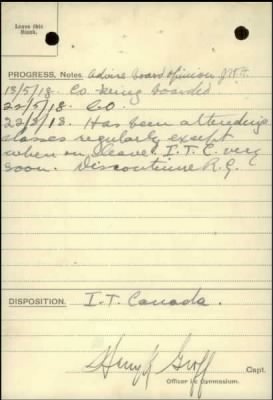 Leave this
Blank.
PROGRESS, Notes. Advise board opinion
13/5/18. Co. being boarded
22/5/18. Co.
22/5/18. Has been attending
classes regularly except
when on leave. I.T.C. very
soon. Discontinue R.G.
DISPOSITION. I.T. Canada.
Groff
Capt.
Officer i/c Gymnasium.